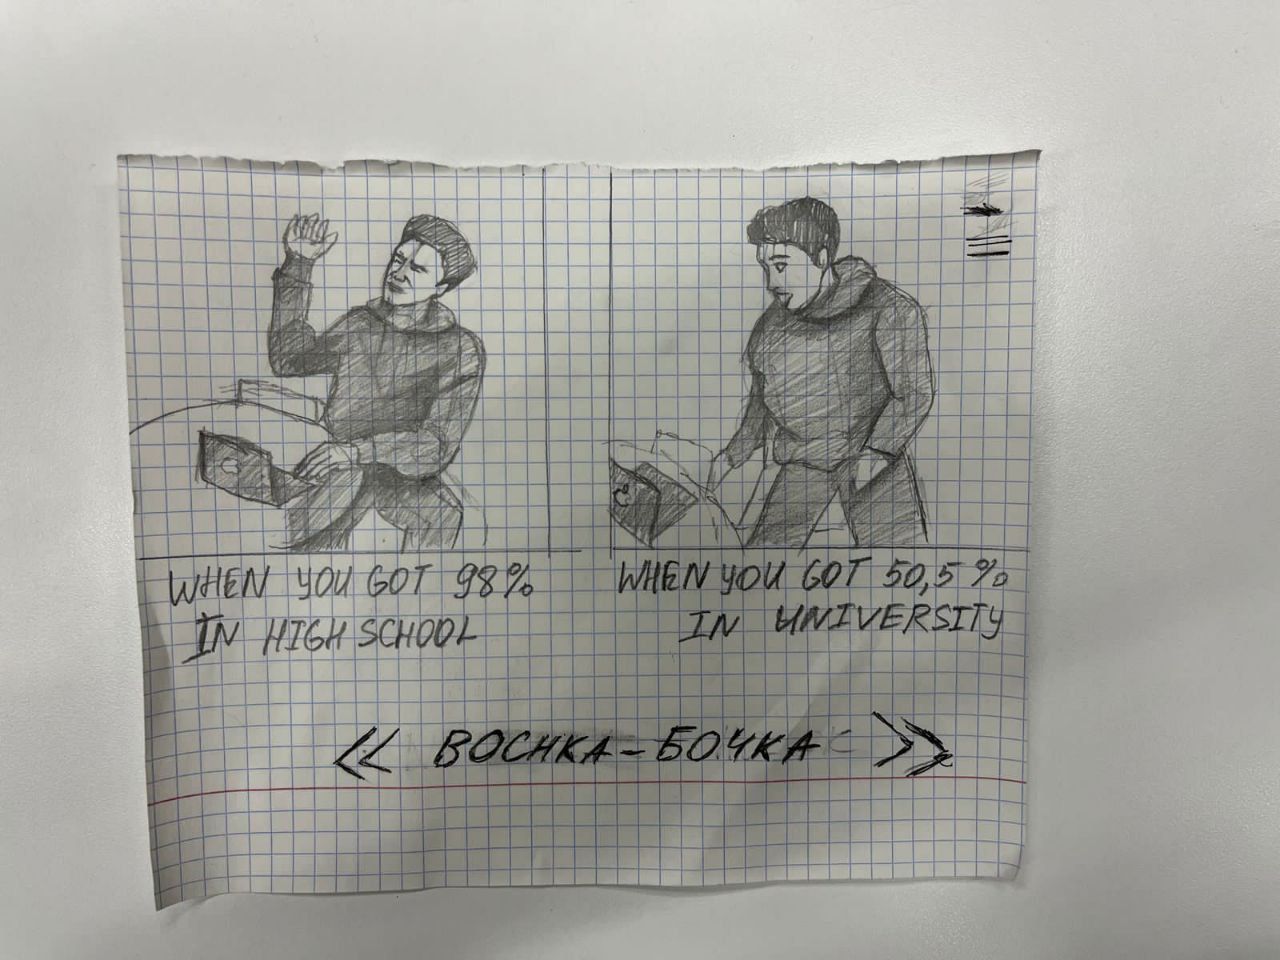 WHEN YOU GOT 98%
IN HIGH SCHOOL
WHEN YOU GOT 50,5%
IN UNIVERSITY
<< BOCHKA-БОЧКА >>